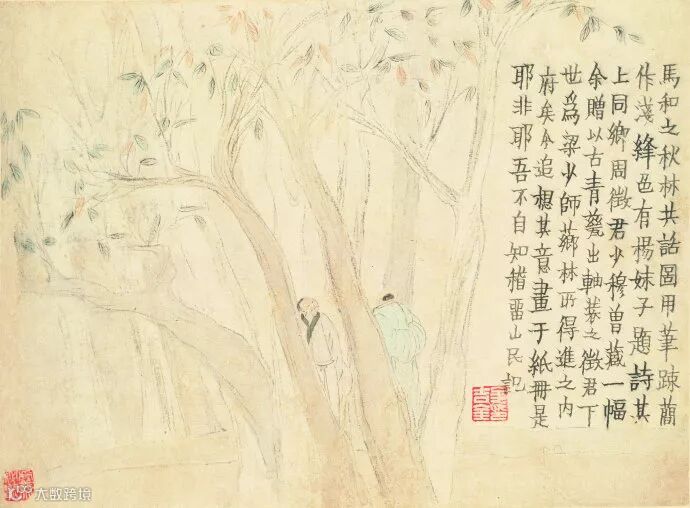 馬和之秋林共話圖用筆疎簡
作淺絳色有楊妹子題詩其
上同鄉周徵君少穆曾藏一幅
余贈以古青甆出軸裝之徵君下
世爲梁少師薌林所得進之内
府矣今追想其意畫于紙冊是
耶非耶吾不自知稽畱山民記
大数跨境